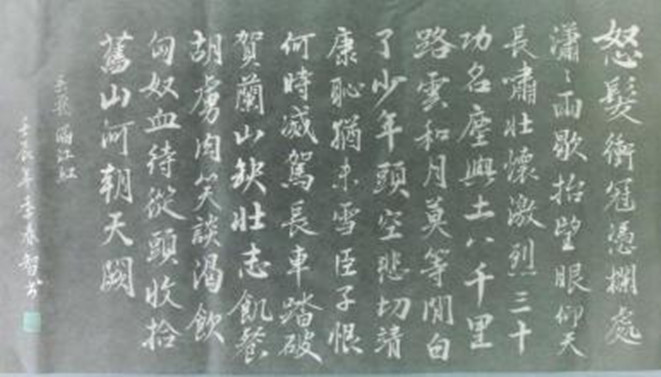 怒髮衝冠憑欄處
瀟〻雨歇抬望眼仰天
長嘯壯懷激烈三十
功名塵與土八千里
路雲和月莫等閒白
了少年頭空悲切靖
康恥猶未雪臣子恨
何時滅駕長車踏破
賀蘭山缺壯志飢餐
胡虜肉笑談渴飲
匈奴血待從頭收拾
舊山河朝天闕
岳飛 滿江紅
壬辰年李春智书